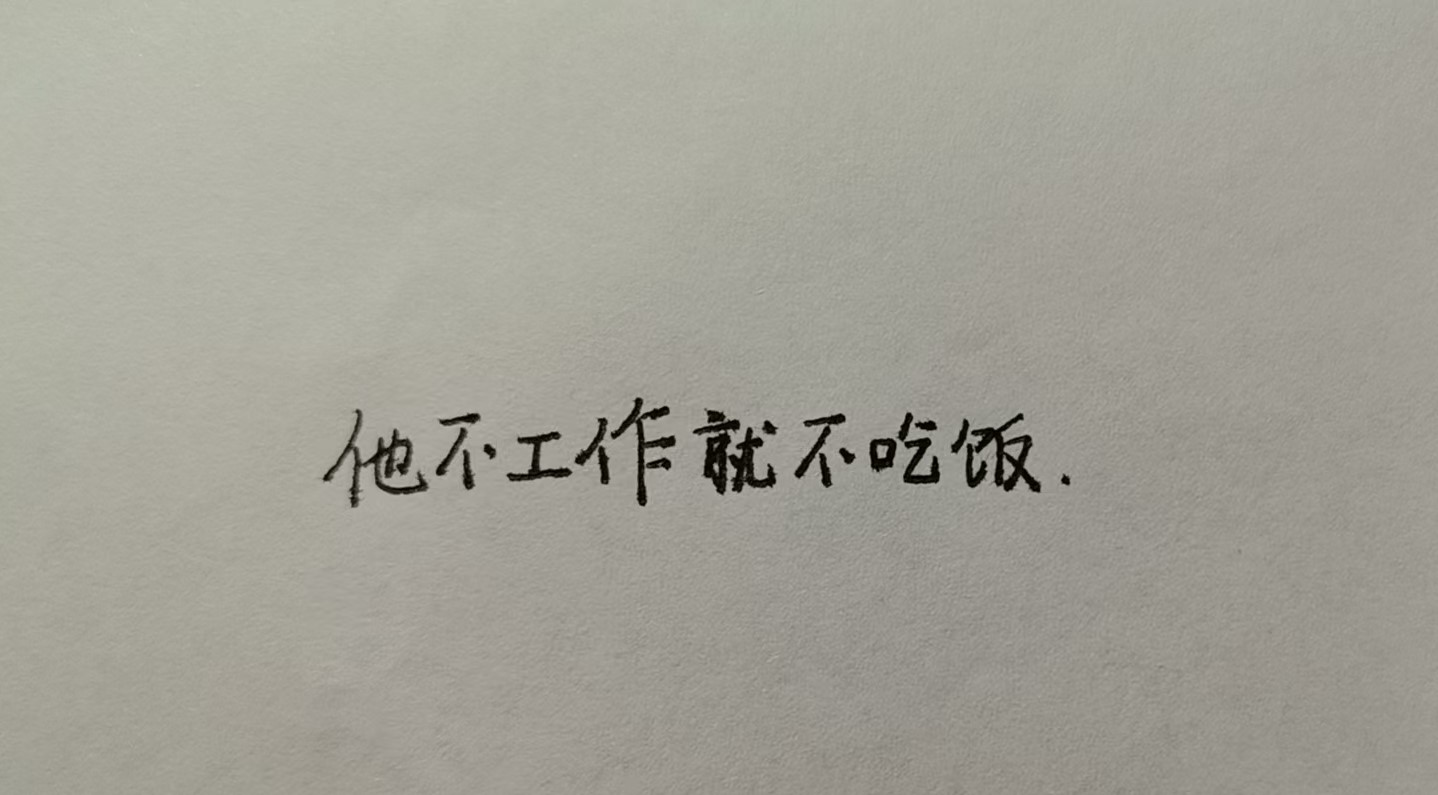 他不工作就不吃饭.